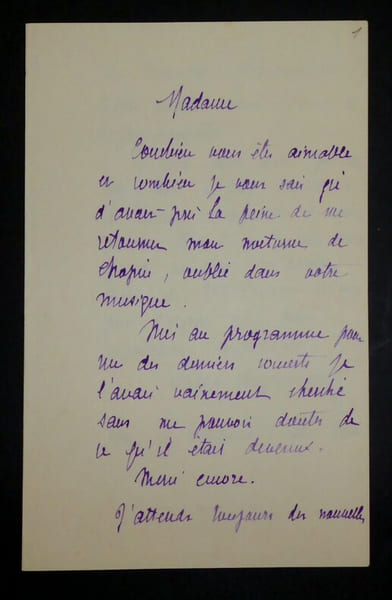 1
Madame
Combien vous êtes aimable
et combien je vous sais gré
d'avoir pris la peine de me
retourner mon nocturne de
Chopin, oublié dans votre
musique.
Mis au programme pour
un des derniers concerts je
l'avais vainement cherché
sans me pouvoir douter de
ce qu'il était devenu.
Merci encore.
J'attends toujours des nouvelles